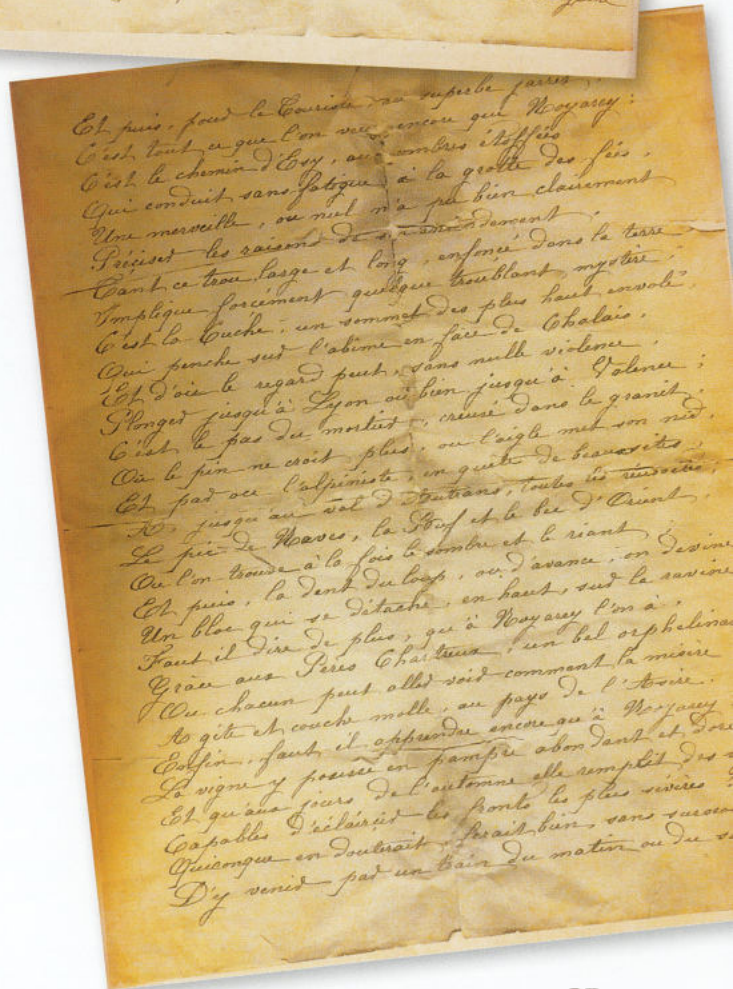 Et puis, pour le Touriste, au superbe jarret,
C'est tout ce que l'on veut encore que Noyarey :
C'est le chemin d'Ezy, aux ombres étoffées
Qui conduit sans fatigue à la grotte des fées,
Une merveille, ou nul n'a pu bien clairement
Préciser les raisons de
Tant ce trou, large et long, enfoncé dans la terre
Implique forcément quelque troublant mystère ;
C'est la Buche, un sommet des plus haut envolé
Qui penche sur l'abîme en face de Chalais,
Et d'où le regard peut, sans nulle violence,
Plonger jusqu'à Lyon ou bien jusqu'à Valence ;
C'est le pas du mortier, creusé dans le granit,
Où le pin ne croit plus, ou l'aigle met son nid,
Et par ace l'alpiniste, en quête de beaux sites
A jusqu'au val d'Autrans, toutes les réussites,
Le pic de Naves, la Stuf et le bec d'Orient,
Ou l'on trouve à la fois le sombre et le riant ;
Et puis, la dent du loup, ou d'avance, on devine
Un bloc qui se détache, en haut, sur la ravine
Faut il dire de plus, qu'à Noyarey l'on a,
Grâce aux Pères Chartreux, un bel orphelinat
Ou chacun peut aller voir comment la misère
A gîte et couche molle, au pays de l'Isère.
Enfin, faut il apprendre encore qu'à Noyarey
La vigne y pousse en pampre abondant et doré
Et qu'aux jours de l'automne elle remplit des
Capables d'éclaircir les fronts les plus sévères
Quiconque en douterait, ferait bien, sans
D'y venir par un train du matin ou du